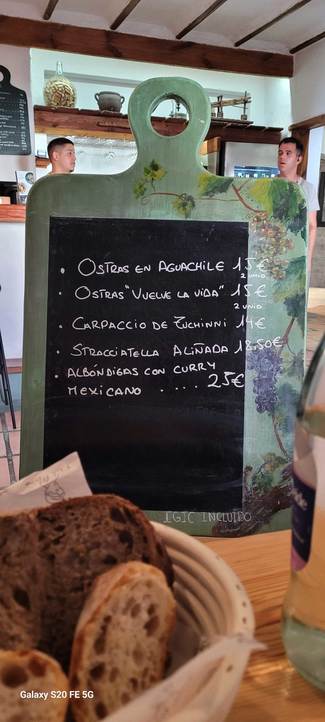 • OSTRAS EN AGUACHILE 15€
2 UNID
• OSTRAS "VUELVE LA VIDA" 15€
2 UNID
• CARPACCIO DE ZUCHINNI 14€
• STRACCIATELLA ALIÑADA 18,50€
• ALBÓNDIGAS CON CURRY
MEXICANO . . . . . 25€
IGIC INCLUIDO
Galaxy S20 FE 5G